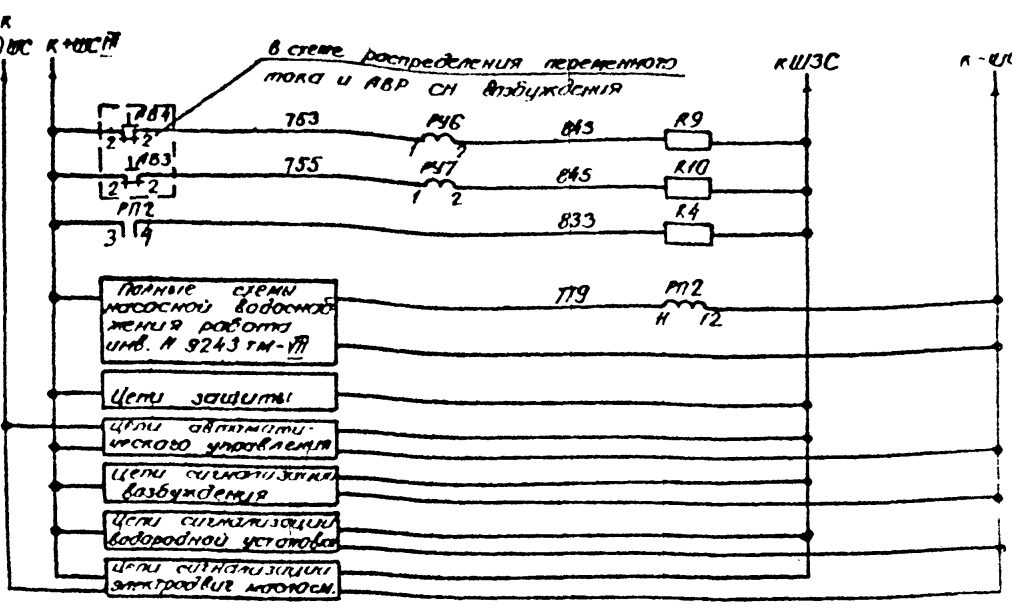 к
ШС
к+ШСIII
в схеме распределения переменного
тока и АВР СН возбуждения
кШЗС
к-ШС
АВ4
2 2
763
РУ6
1 2
843
R9
АВ3
2 2
755
РУ7
1 2
845
R10
РП2
3 4
833
R4
Полные схемы
насосной водоснаб
жения работа
инв. N 9243 тм-VII
779
РП2
11 12
Цепи защиты
Цепи автомати-
ческого управления
Цепи сигнализации
возбуждения
Цепи сигнализации
водородной установки
Цепи сигнализации
электродвиг маслосн.